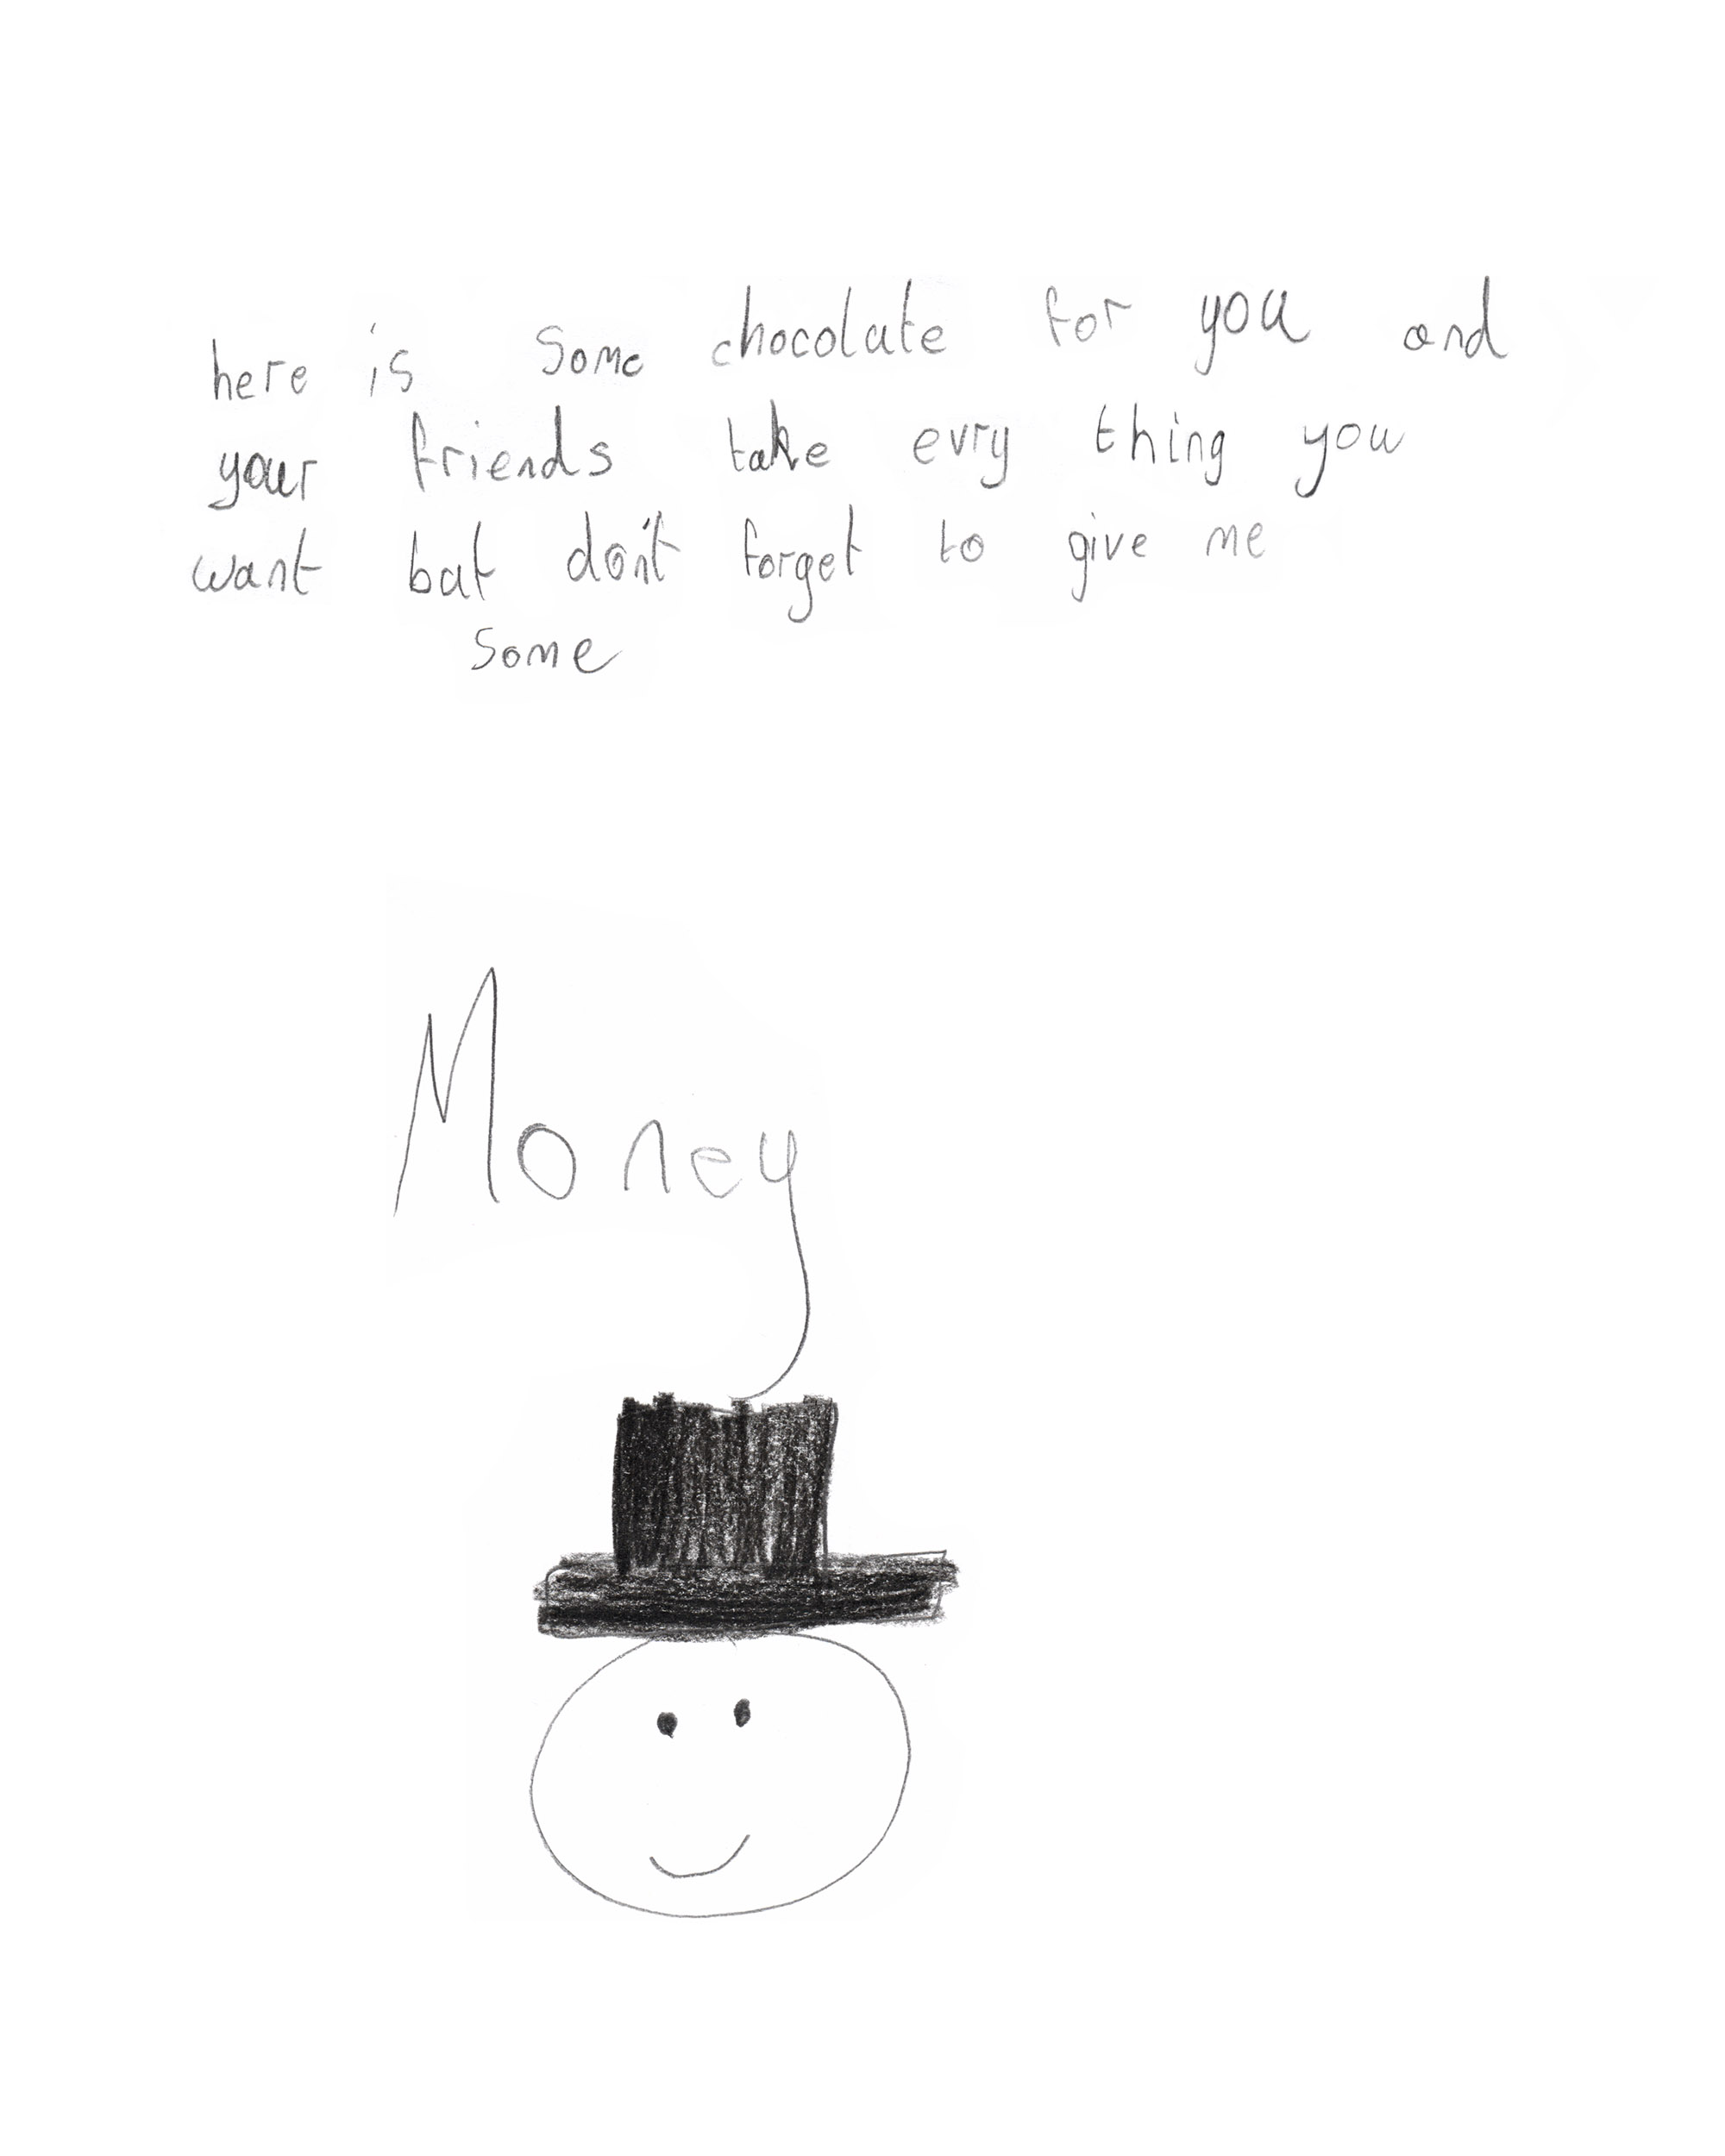 here is some chocolate for you and
your friends take evry thing you
want bat don't forget to give me
some
Money